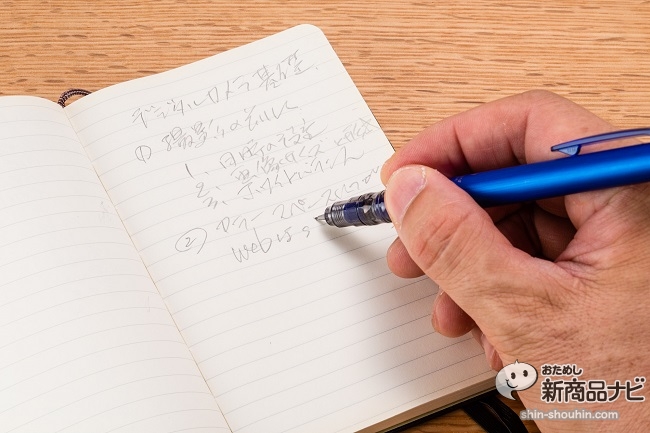 デジタルカメラ基礎
① 撮影の
1. 日時の設定
2. 画像サイズ
3. ホワイトバランス
② カラースペースについて
web は s
おためし
新商品ナビ
shin-shouhin.com